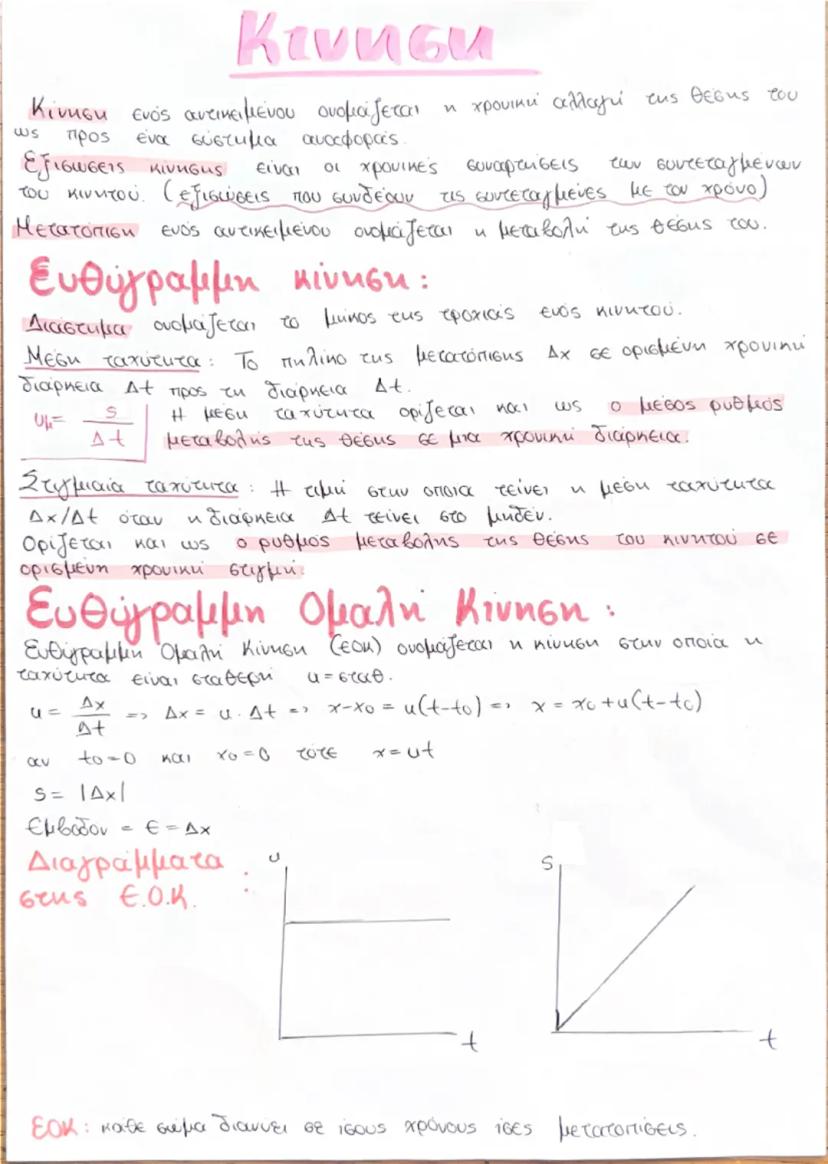 Κίνηση
Κίνηση ενός αντικειμένου ονομάζεται η χρονική αλλαγή της θέσης του
ως προς ένα σύστημα αναφοράς.
Εξισώσεις κίνησης είναι οι χρονικές συναρτήσεις των συντεταγμένων
του κινητού. (εξισώσεις που συνδέουν τις συντεταγμένες με τον χρόνο)
Μετατόπιση ενός αντικειμένου ονομάζεται η μεταβολή της θέσης του.
Ευθύγραμμη κίνηση:
Διάστημα ονομάζεται το μήκος της τροχιάς ενός κινητού.
Μέση ταχύτητα: Το πηλίκο της μετατόπισης Δx σε ορισμένη χρονική
διάρκεια Δt προς τη διάρκεια Δt.
υμ = s / Δt
Η μέση ταχύτητα ορίζεται και ως ο μέσος ρυθμός
μεταβολής της θέσης σε μια χρονική διάρκεια.
Στιγμιαία ταχύτητα: Η τιμή στην οποία τείνει η μέση ταχύτητα
Δx/Δt όταν η διάρκεια Δt τείνει στο μηδέν.
Ορίζεται και ως ο ρυθμός μεταβολής της θέσης του κινητού σε
ορισμένη χρονική στιγμή.
Ευθύγραμμη Ομαλή Κίνηση:
Ευθύγραμμη Ομαλή Κίνηση (ΕΟΚ) ονομάζεται η κίνηση στην οποία η
ταχύτητα είναι σταθερή υ=σταθ.
υ = Δx / Δt => Δx = υ . Δt => x-x0 = υ(t-t0) => x = x0+υ(t-t0)
αν t0=0 και x0=0 τότε x=υt
S= |Δx|
Εμβαδόν = Ε = Δx
Διαγράμματα :
στης Ε.Ο.Κ.
υ
t
S
t
ΕΟΚ: κάθε σώμα διανύει σε ίσους χρόνους ίσες μετατοπίσεις.